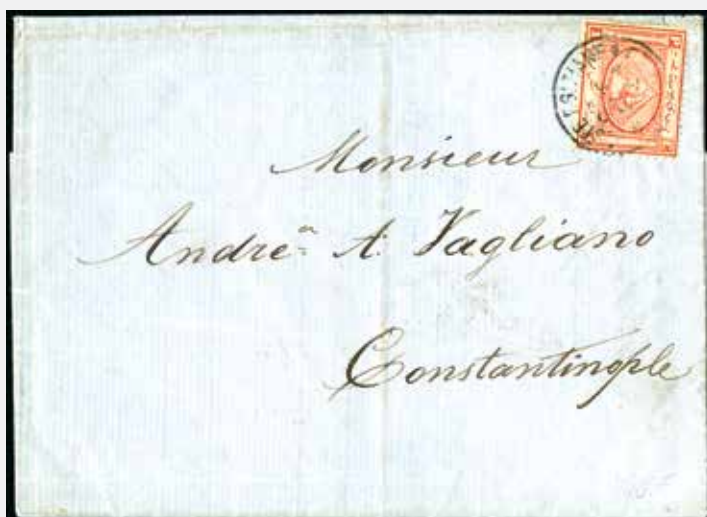 Monsieur
Andreᵃ A. Vagliano
Constantinople